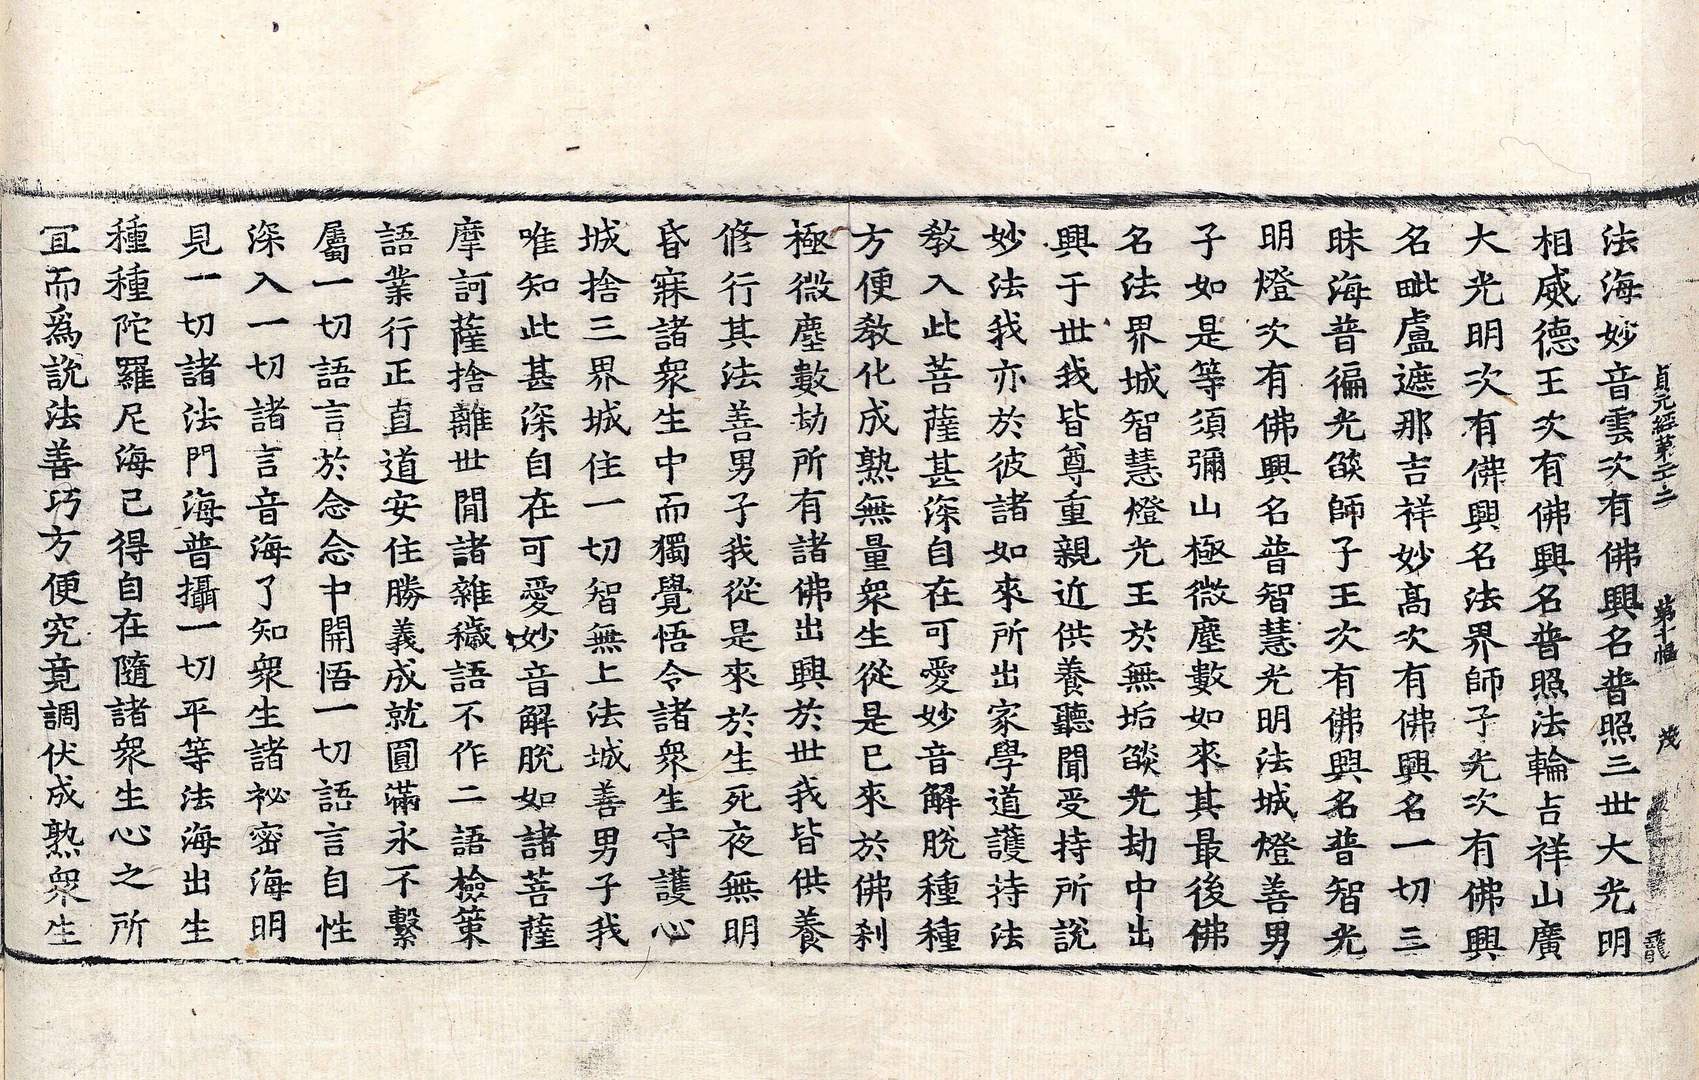 貞元經第二十二 第十幅 茂
法海妙音雲次有佛興名普照三世大光明
相威德王次有佛興名普照法輪吉祥山廣
大光明次有佛興名法界師子光次有佛興
名毗盧遮那吉祥妙高次有佛興名一切三
昧海普徧光燄師子王次有佛興名普智光
明燈次有佛興名普智慧光明法城燈善男
子如是等須彌山極微塵數如來其最後佛
名法界城智慧燈光王於無垢燄光劫中出
興于世我皆尊重親近供養聽聞受持所說
妙法我亦於彼諸如來所出家學道護持法
教入此菩薩甚深自在可愛妙音解脫種種
方便教化成熟無量衆生從是已來於佛刹
極微塵數劫所有諸佛出興於世我皆供養
修行其法善男子我從是來於生死夜無明
昏寐諸衆生中而獨覺悟令諸衆生守護心
城捨三界城住一切智無上法城善男子我
唯知此甚深自在可愛妙音解脫如諸菩薩
摩訶薩捨離世閒諸雜穢語不作二語檢策
語業行正直道安住勝義成就圓滿永不繫
屬一切語言於念念中開悟一切語言自性
深入一切諸言音海了知衆生諸祕密海明
見一切諸法門海普攝一切平等法海出生
種種陀羅尼海已得自在隨諸衆生心之所
冝而爲說法善巧方便究竟調伏成熟衆生